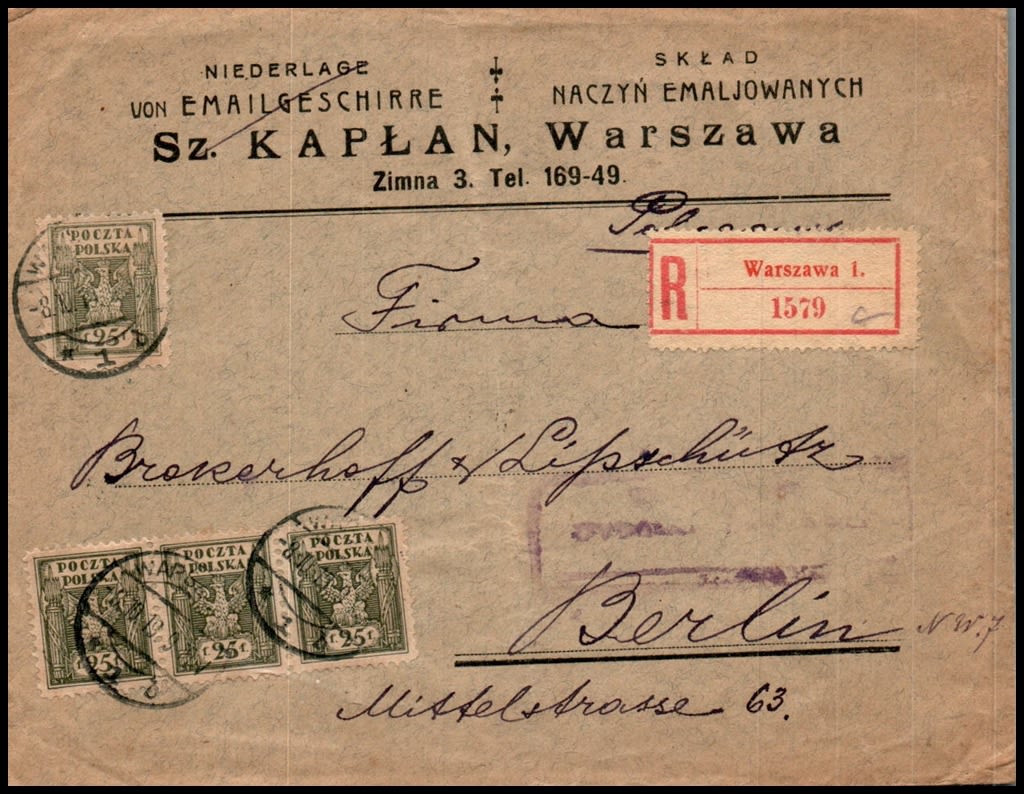 NIEDERLAGE
VON EMAILGESCHIRRE
SKŁAD
NACZYŃ EMALJOWANYCH
Sz. KAPŁAN, Warszawa
Zimna 3. Tel. 169-49.
R
Warszawa 1.
1579
POCZTA
POLSKA
25
1 b
Firma
Brokerhoff & Lipschütz
POCZTA
POLSKA
f 25 f
POCZTA
POLSKA
f 25 f
POCZTA
POLSKA
f 25 f
Berlin N.W. 7
Mittelstrasse 63.